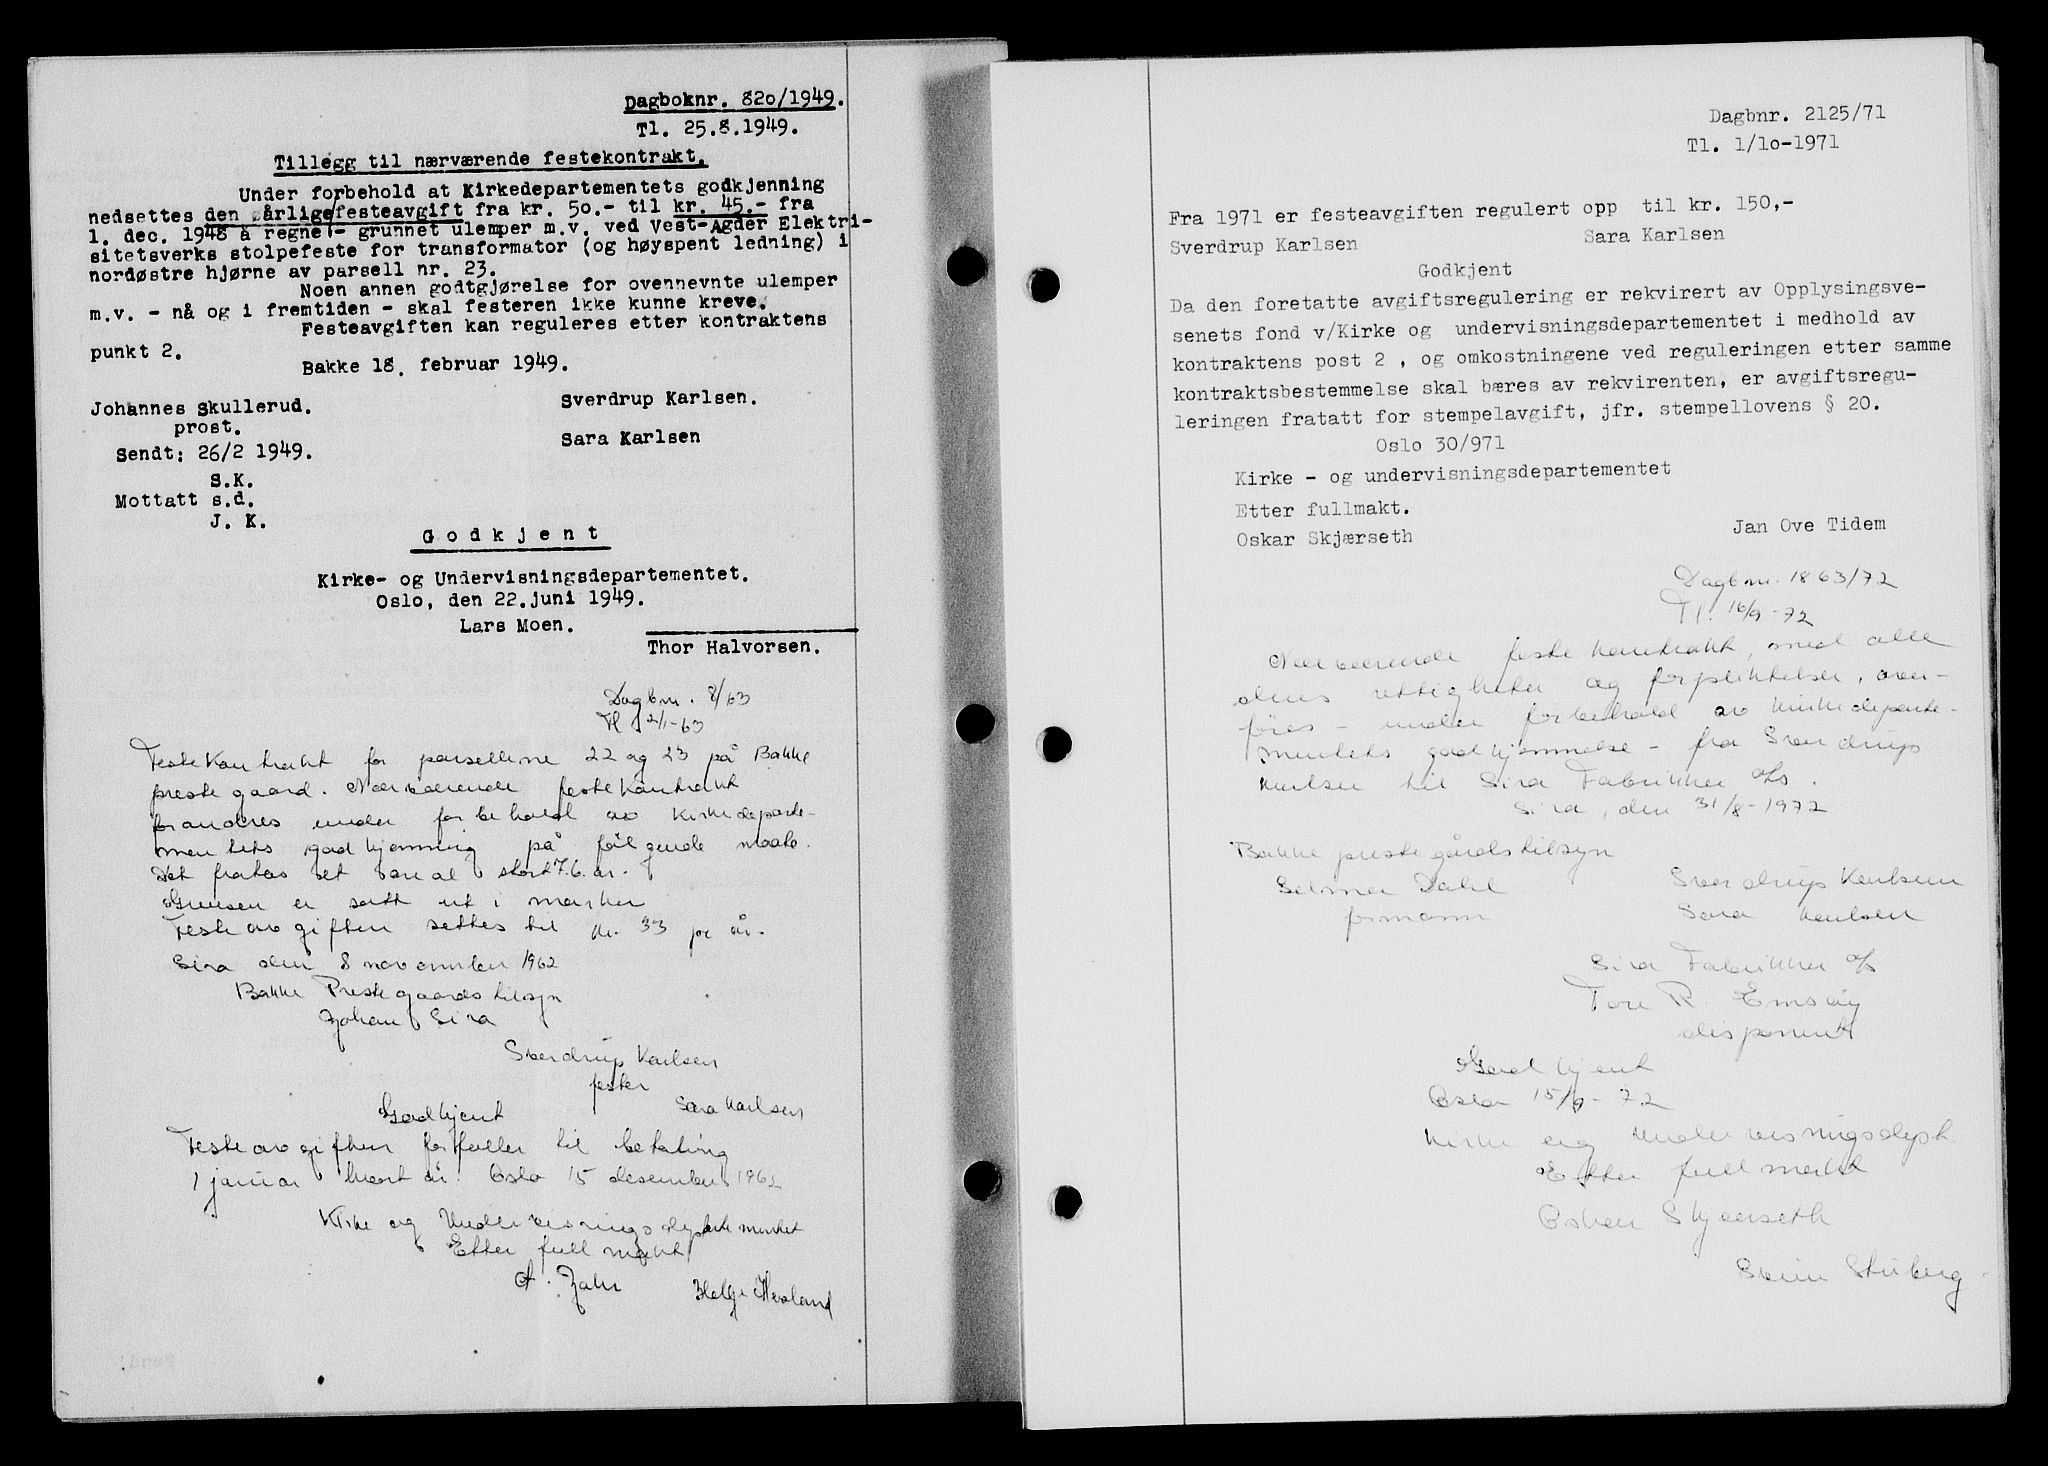 Dagboknr. 820/1949.
Tl. 25.8.1949.
Tillegg til nærværende festekontrakt.
Under forbehold at Kirkedepartementets godkjenning
nedsettes den årlige festeavgift fra kr. 50.- til kr. 45.- fra
1. dec. 1948 å regne - grunnet ulemper m.v. ved Vest-Agder Elektri-
sitetsverks stolpefeste for transformator (og høyspent ledning) i
nordøstre hjørne av parsell nr. 23.
Noen annen godtgjørelse for ovennevnte ulemper
m.v. - nå og i fremtiden - skal festeren ikke kunne kreve.
Festeavgiften kan reguleres etter kontraktens
punkt 2.
Bakke 18. februar 1949.
Johannes Skullerud.
prost.
Sverdrup Karlsen.
Sara Karlsen
Sendt: 26/2 1949.
S.K.
Mottatt s.d.
J. K.
Godkjent
Kirke- og Undervisningsdepartementet.
Oslo, den 22.juni 1949.
Lars Moen.
Thor Halvorsen.
Dagbnr. 8/63
Tl 2/1-63
Festekontrakt for parsellene 22 og 23 på Bakke
prestegaard. Nærværende festekontrakt
forandres under forbehold av Kirkedeparte-
mentets godkjenning på følgende maate.
Det fratas et areal stort 7.6. ar.
Grensen er satt ut i marken
Festeavgiften settes til kr. 33 pr år.
Sira den 8 november 1962
Bakke Prestegaardstilsyn
Johan Sira
Sverdrup Karlsen
fester
Sara Karlsen
Godkjent
Festeavgiften forfaller til betaling
1 januar hvert år. Oslo 15 desember 1962
Kirke og Undervisningsdepartementet
Etter fullmakt
A. Jahr
Helge
Dagbnr. 2125/71
Tl. 1/10-1971
Fra 1971 er festeavgiften regulert opp til kr. 150,-
Sverdrup Karlsen Sara Karlsen
Godkjent
Da den foretatte avgiftsregulering er rekvirert av Opplysingsve-
senets fond v/Kirke og undervisningsdepartementet i medhold av
kontraktens post 2 , og omkostningene ved reguleringen etter samme
kontraktsbestemmelse skal bæres av rekvirenten, er avgiftsregu-
leringen fratatt for stempelavgift, jfr. stempellovens § 20.
Oslo 30/971
Kirke - og undervisningsdepartementet
Etter fullmakt.
Oskar Skjærseth
Jan Ove Tidem
Dagbnr. 1863/72
Tl. 16/9-72
Nærværende festekontrakt, med alle
dens rettigheter og forpliktelser, over-
føres - under forbehold av Kirkedeparte-
mentets godkjennelse - fra Sverdrup
Karlsen til Sira Fabrikker a/s.
Sira, den 31/8-1972
Bakke prestegårdstilsyn
Selmer Dahl
formann
Sverdrup Karlsen
Sara Karlsen
Sira Fabrikker a/s
Tore R. Emsøy
disponent
Godkjent
Oslo 15/9-72
Kirke og Undervisningsdept.
Etter fullmakt
Oskar Skjærseth
Svein